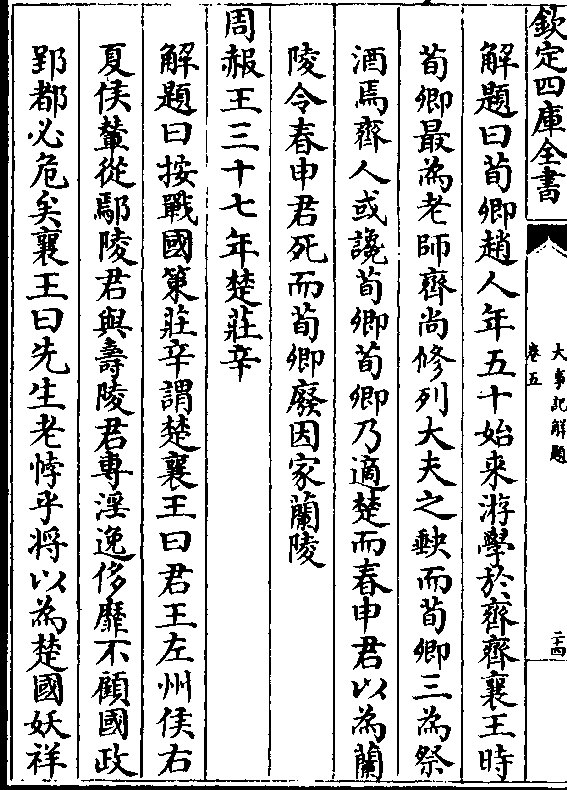 欽定四庫全書
大事記解題
卷五
二十四
解題曰荀卿趙人年五十始来游學於齊齊襄王時
荀卿最為老師齊尚修列大夫之缺而荀卿三為祭
酒焉齊人或讒荀卿荀卿乃適楚而春申君以為蘭
陵令春申君死而荀卿廢因家蘭陵
周赧王三十七年楚莊辛
解題曰按戰國策莊辛謂楚襄王曰君王左州侯右
夏侯輦從鄢陵君與壽陵君專淫逸侈靡不顧國政
郢都必危矣襄王曰先生老悖乎将以為楚國妖祥